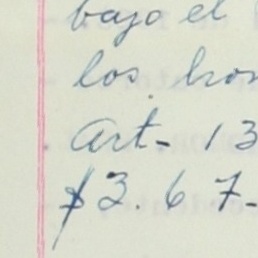 bajo el
los hon
Art- 13
$3.67-